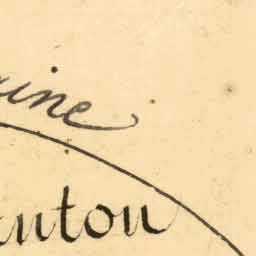 ine
nton